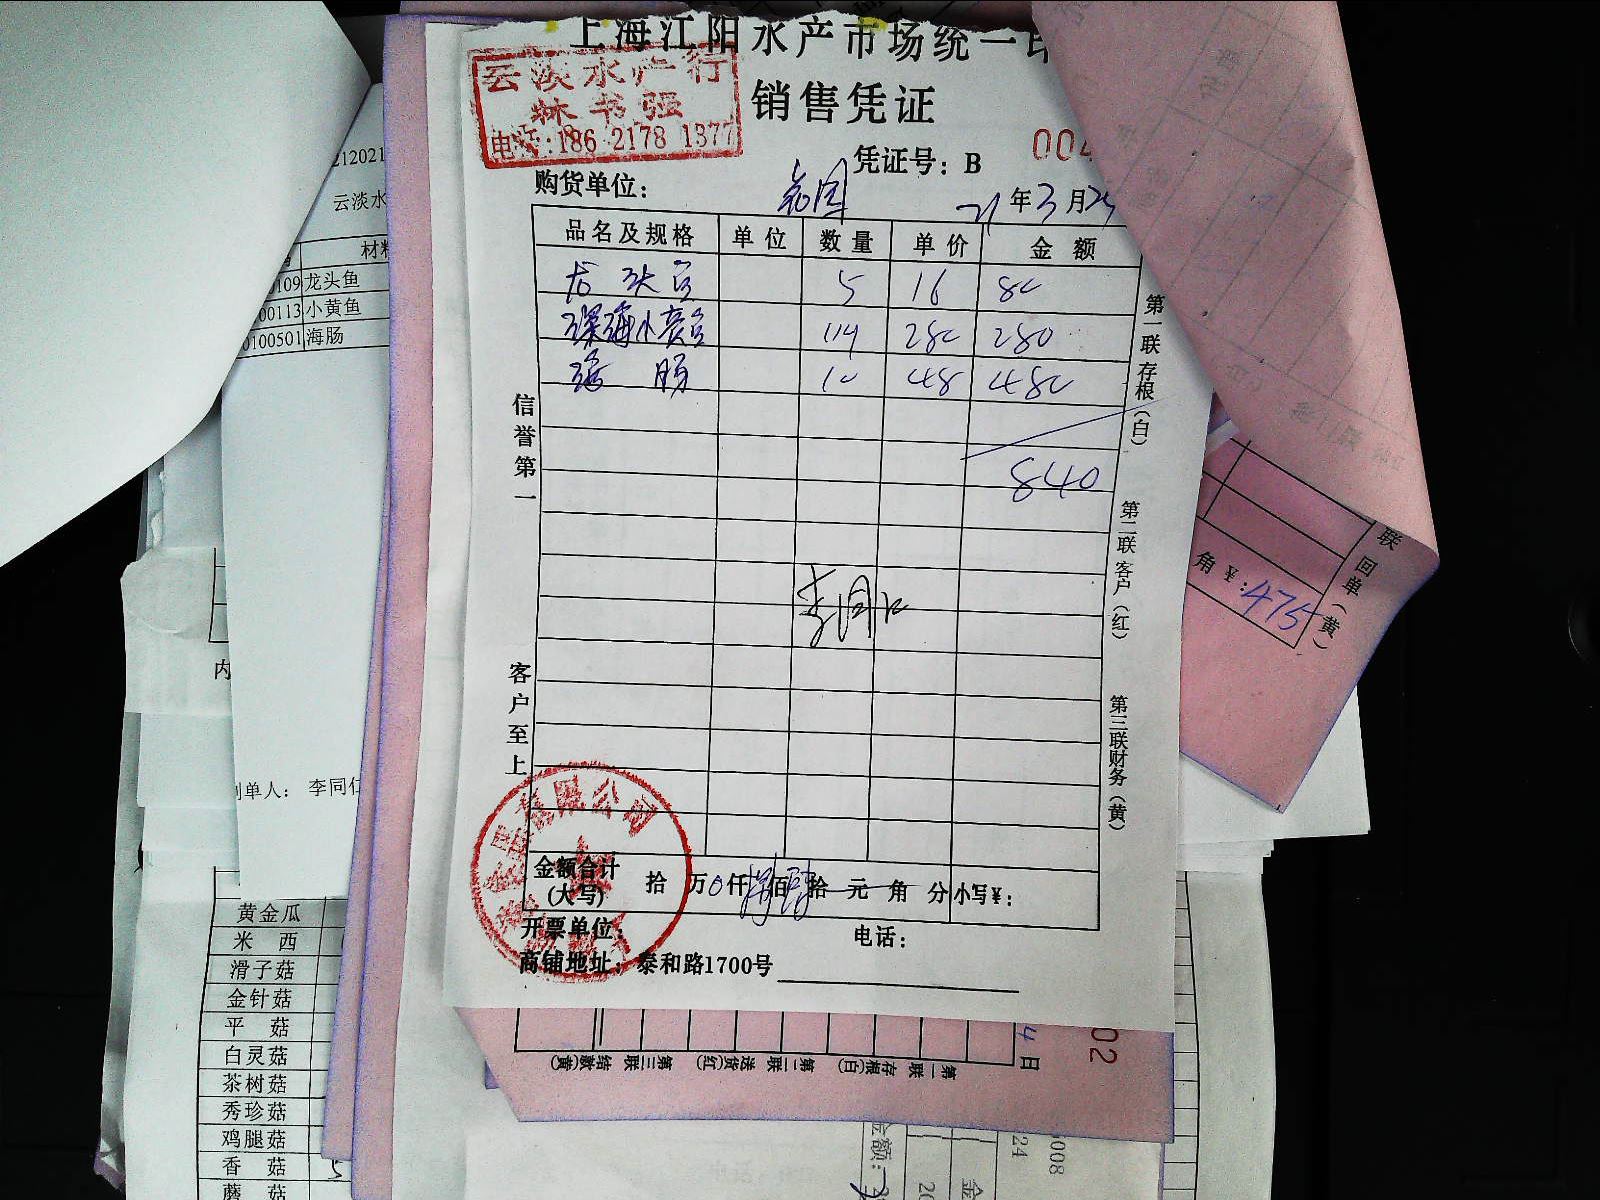 上海江阳水产市场统一印
云淡水产行
林书强
电话:186 2178 1377
销售凭证
凭证号：B 004
购货单位：
21 年 3 月 25
品名及规格 单位 数量 单价 金额
龙头鱼 5 16 80
深海小黄鱼 1件 280 280
海肠 10 48 480
840
李同仁
信誉第一
客户至上
第一联存根（白）
第二联客户（红）
第三联财务（黄）
金额合计(大写) 拾 万 0 仟 捌 佰 肆 拾 元 角 分 小写¥：
开票单位： 电话：
商铺地址：泰和路1700号
有限公司
212021
云淡水
材料
109 龙头鱼
00113 小黄鱼
0100501 海肠
内
制单人： 李同仁
黄金瓜
米 西
滑子菇
金针菇
平 菇
白灵菇
茶树菇
秀珍菇
鸡腿菇
香 菇 5
蘑 菇
联回单（黄）
角 ¥:475
4日
02
第一联 存根(白) 第二联 送货(红) 第三联 结款(黄)
金额:
008
24
20
金